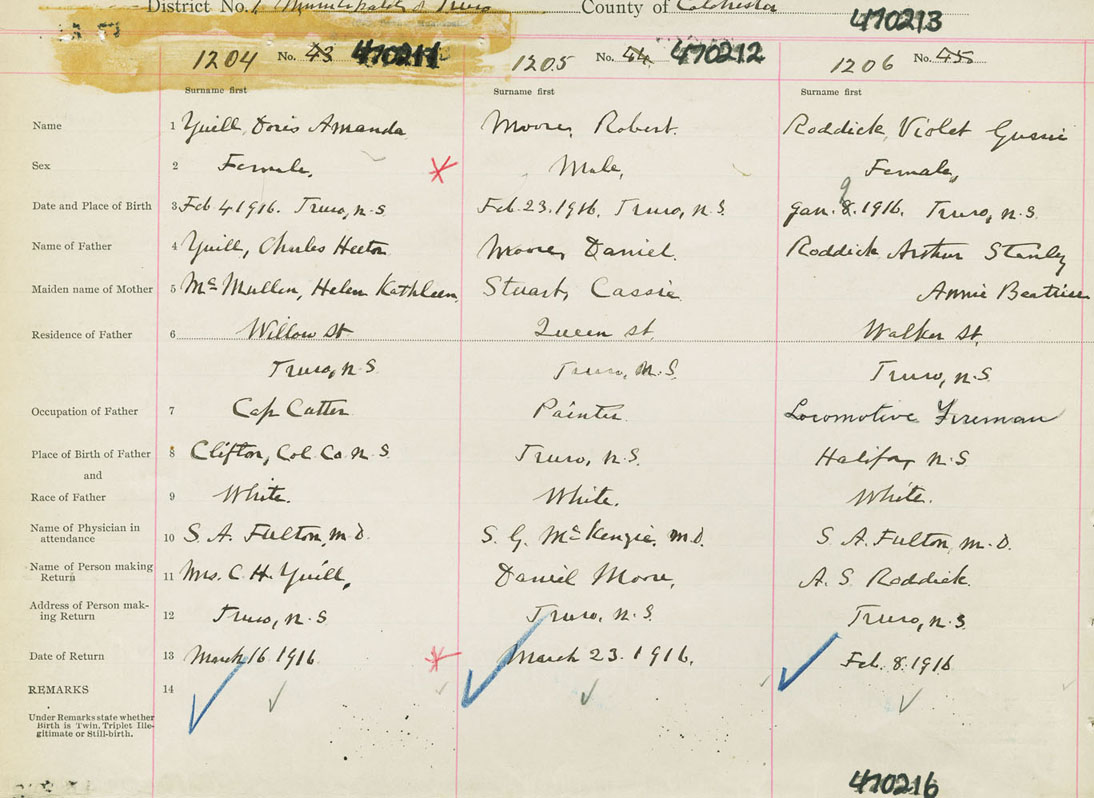 District No. 1 Municipality of Truro County of Colchester
470213
1204 No. 43 470211 1205 No. 44 470212 1206 No. 45
Surname first Surname first Surname first
Name 1 Yuill, Doris Amanda Moore, Robert. Roddick, Violet Gussie
Sex 2 Female, Male, Female,
9
Date and Place of Birth 3 Feb 4 1916. Truro, n.s. Feb. 23. 1916. Truro, n.s. Jan. 8. 1916. Truro, n.s.
Name of Father 4 Yuill, Charles Hector Moore, Daniel. Roddick Arthur Stanley
Maiden name of Mother 5 McMullen, Helen Kathleen, Stuart, Cassie Annie Beatrice
Residence of Father 6 Willow St Queen St. Walker St.
Truro, n.S. Truro, n.S. Truro, n.S
Occupation of Father 7 Cap Cutter Painter Locomotive Fireman
Place of Birth of Father 8 Clifton, Col. Co. n.S. Truro, n.S. Halifax, n.S.
and
Race of Father 9 White. White. White.
Name of Physician in
attendance 10 S. A. Fulton, m.D. S. G. McKenzie, m.D. S. A. Fulton, m.D.
Name of Person making
Return 11 Mrs. C. H. Yuill, Daniel Moore, A. S. Roddick.
Address of Person mak-
ing Return 12 Truro, n.S Truro, n.S. Truro, n.S.
Date of Return 13 March 16 1916 March 23. 1916. Feb. 8. 1916
REMARKS 14
Under Remarks state whether
Birth is Twin, Triplet Ille-
gitimate or Still-birth.
470216